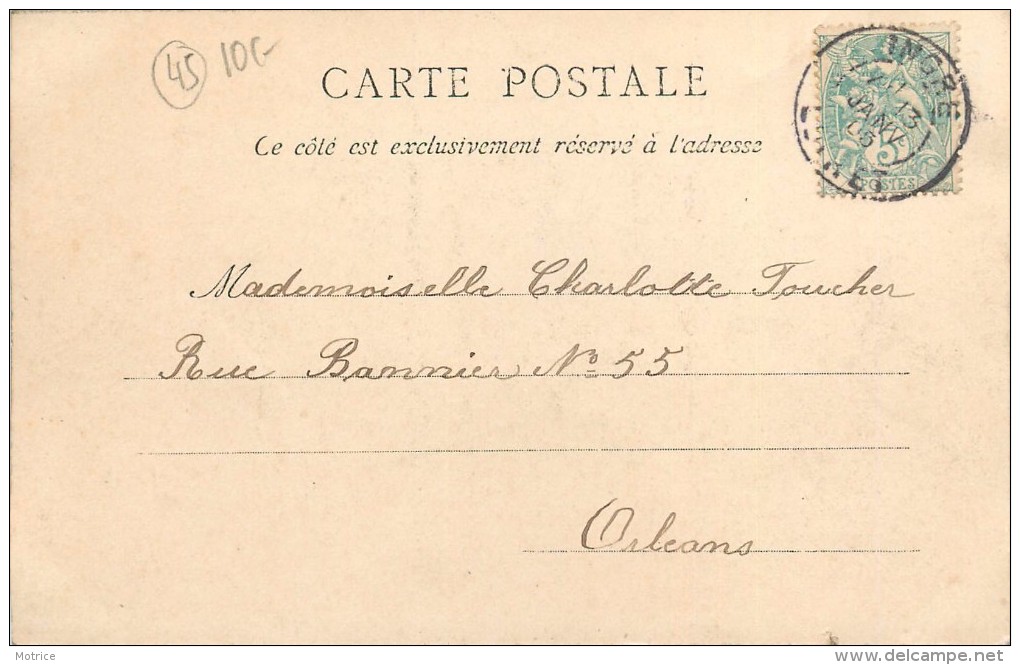 45 10€
CARTE POSTALE
Ce côté est exclusivement réservé à l'adresse
INGRÉ
13
JANV
05
5
POSTES
Mademoiselle Charlotte Toucher
Rue Bannier No 55
Orleans
Motrice
delcampe.net